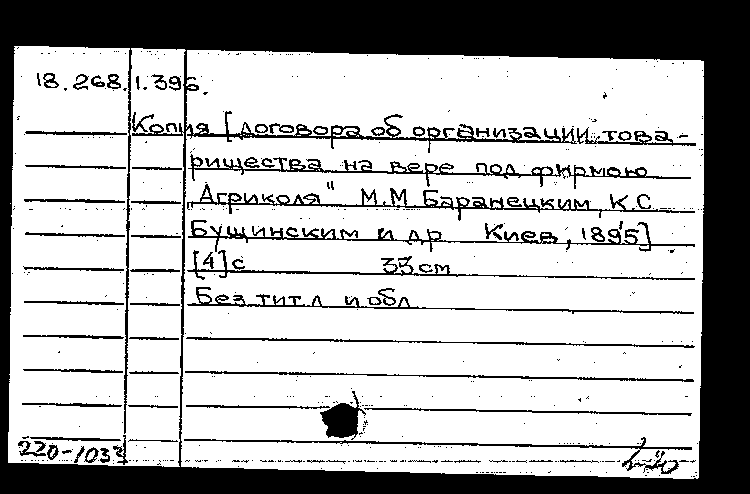 18.268.1.396.
Копия [договора об организации това-
рищества на вере под фирмою
„Агриколя" М.М Баранецким, К.С
Бущинским и др Киев, 1895]
[4]с 33 см
Без тит.л и обл
220-1033